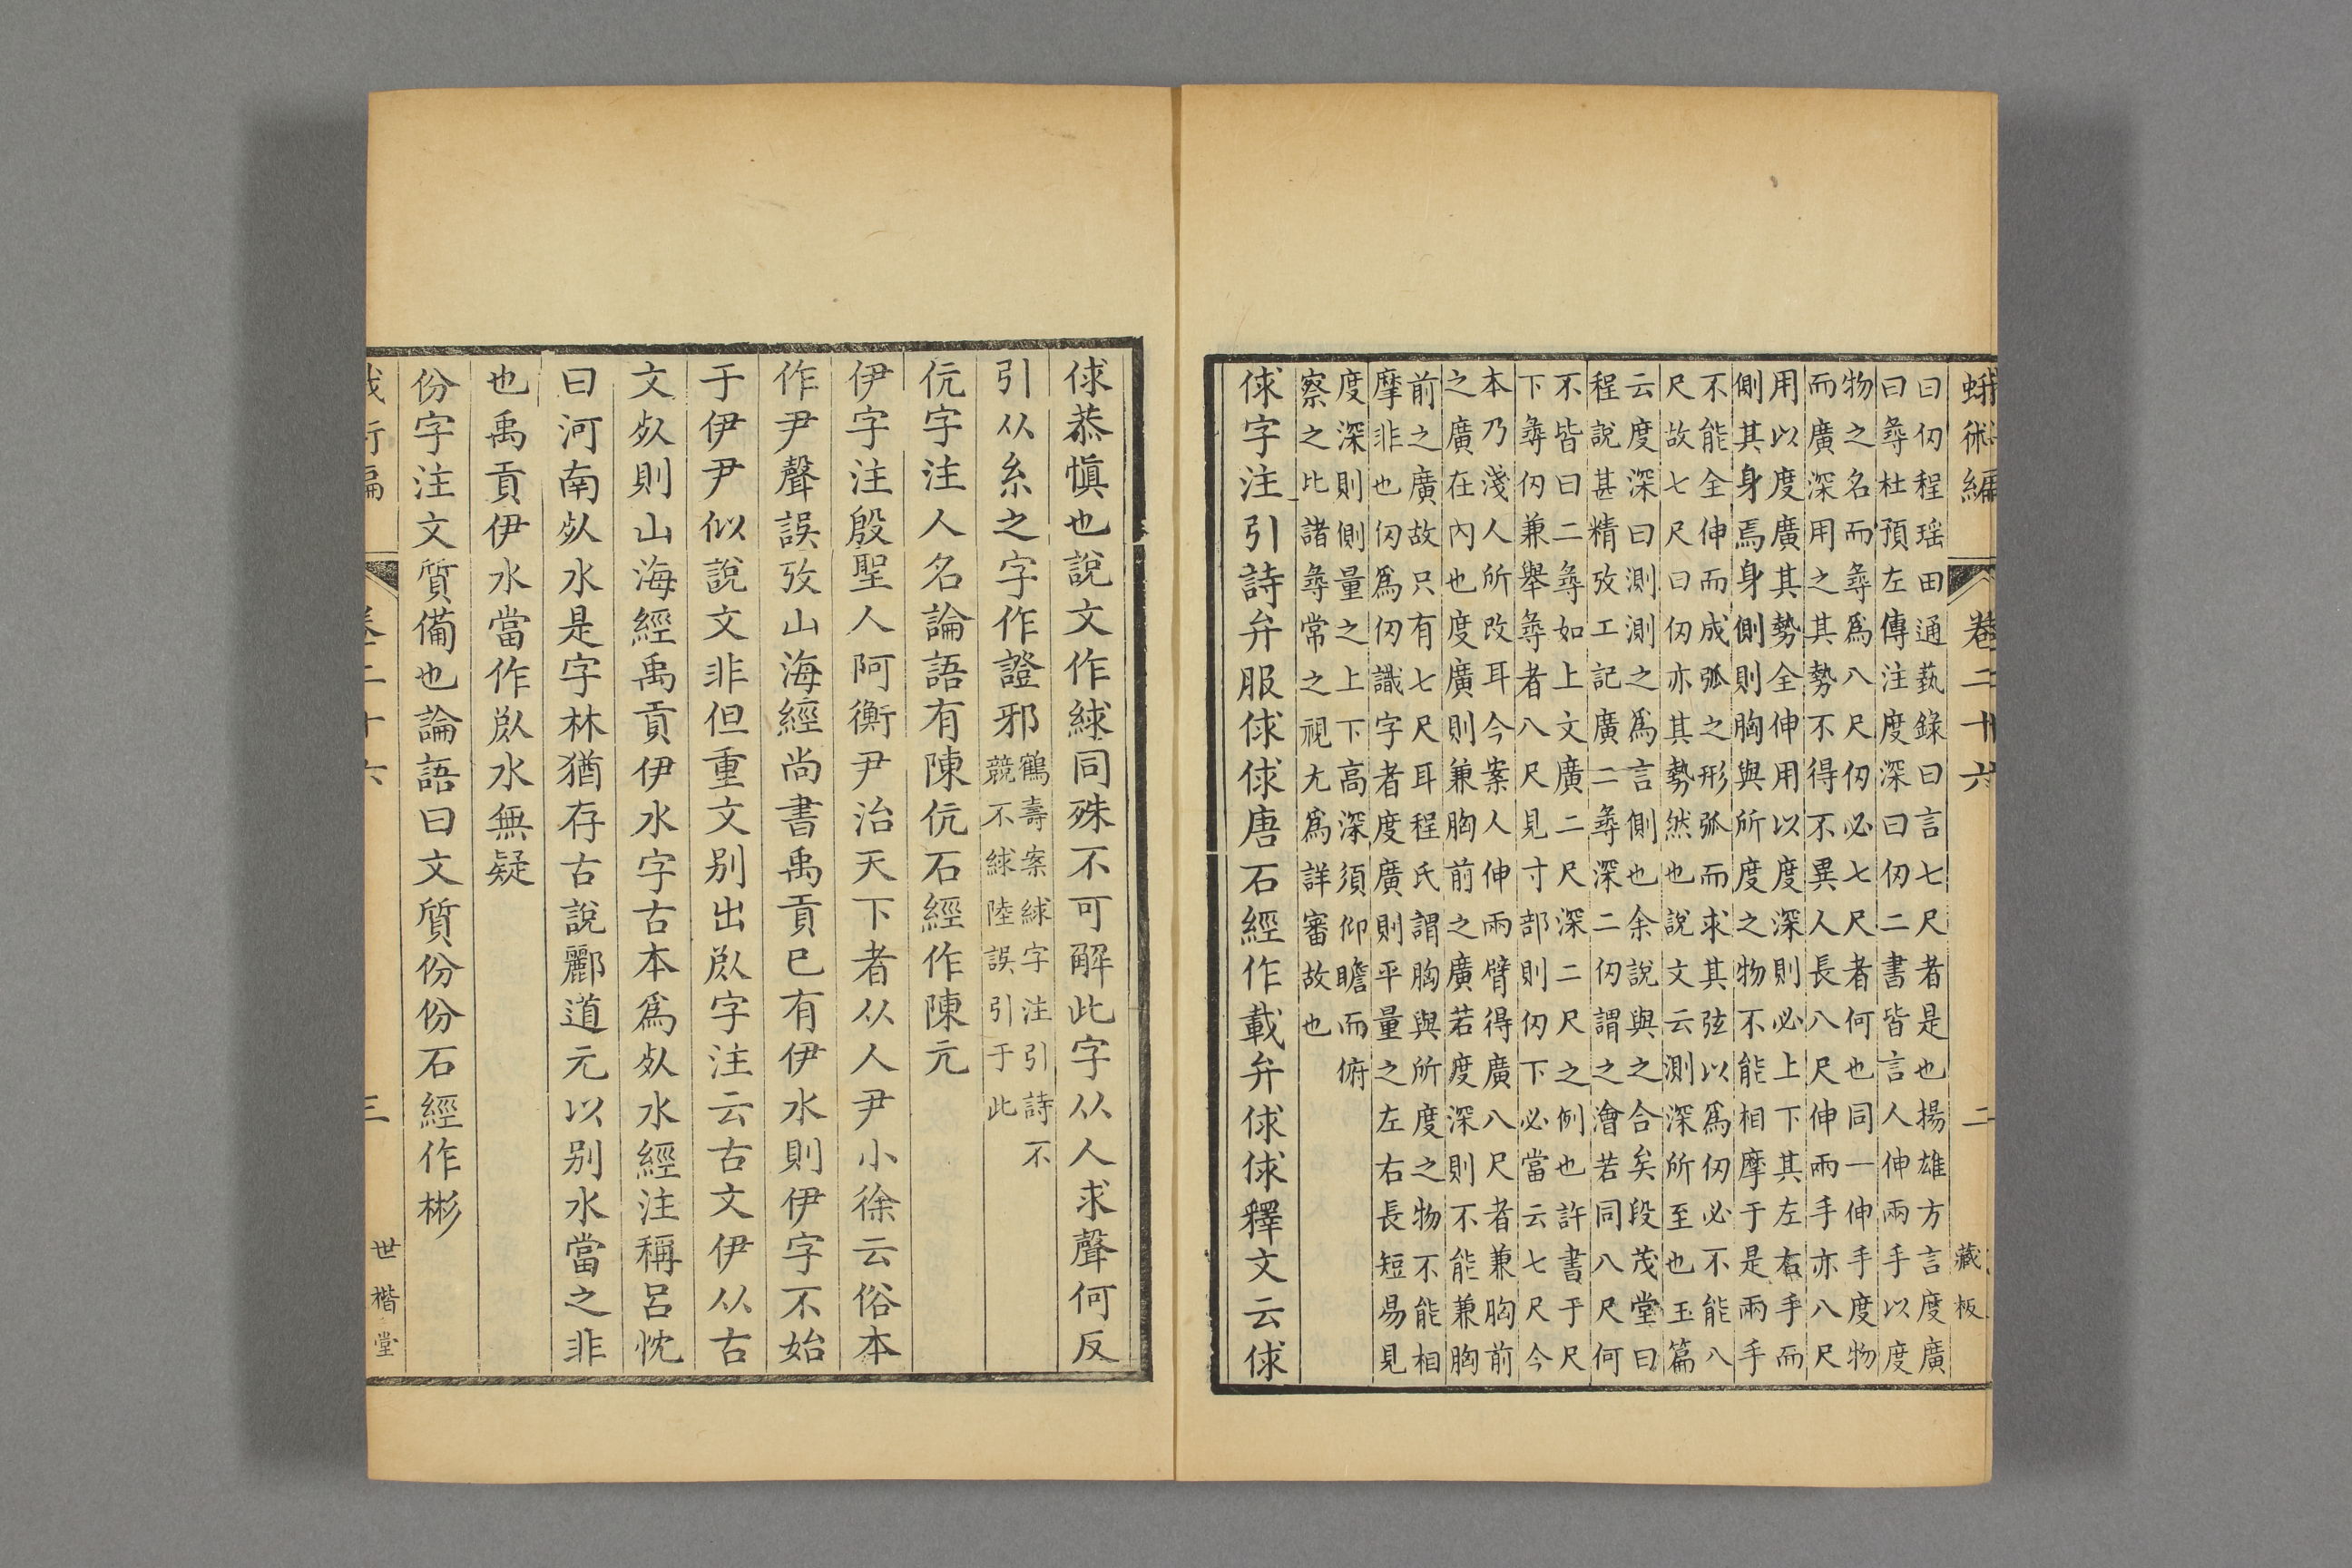 蛾術編 卷二十六 二 藏板
曰仞程瑶田通藝錄曰言七尺者是也揚雄方言度廣
曰尋杜預左傳注度深曰仞二書皆言人伸兩手以度
物之名而尋爲八尺仞必七尺者何也同一伸手度物
而廣深用之其勢不得不異人長八尺伸兩手亦八尺
用以度廣其勢全伸用以度深則必上下其左右手而
側其身焉身側則胸與所度之物不能相摩于是兩手
不能全伸而成弧之形弧而求其弦以爲仞必不能八
尺故七尺曰仞亦其勢然也說文云測深所至也玉篇
云度深曰測測之爲言側也余說與之合矣段茂堂曰
程說甚精攷工記廣二尋深二仞謂之澮若同八尺何
不皆曰二尋如上文廣二尺深二尺之例也許書于尺
下尋仞兼舉尋者八尺見寸部則仞下必當云七尺今
本乃淺人所改耳今案人伸兩臂得廣八尺者兼胸前
之廣在內也度廣則兼胸前之廣若度深則不能兼胸
前之廣故只有七尺耳程氏謂胸與所度之物不能相
摩非也仞爲仞識字者度廣則平量之左右長短易見
度深則側量之上下高深須仰瞻而俯
察之比諸尋常之視尤爲詳審故也
俅字注引詩弁服俅俅唐石經作載弁俅俅釋文云俅
俅恭愼也說文作絿同殊不可解此字从人求聲何反
引从糸之字作證邪鶴壽案絿字注引詩不
競不絿陸誤引于此
伉字注人名論語有陳伉石經作陳亢
伊字注殷聖人阿衡尹治天下者从人尹小徐云俗本
作尹聲誤攷山海經尚書禹貢已有伊水則伊字不始
于伊尹似說文非但重文別出㑶字注云古文伊从古
文𣦸則山海經禹貢伊水字古本爲𣦸水經注稱呂忱
曰河南𣦸水是字林猶存古說酈道元以別水當之非
也禹貢伊水當作㑶水無疑
份字注文質備也論語曰文質份份石經作彬
蛾術編 卷二十六 三 世楷堂